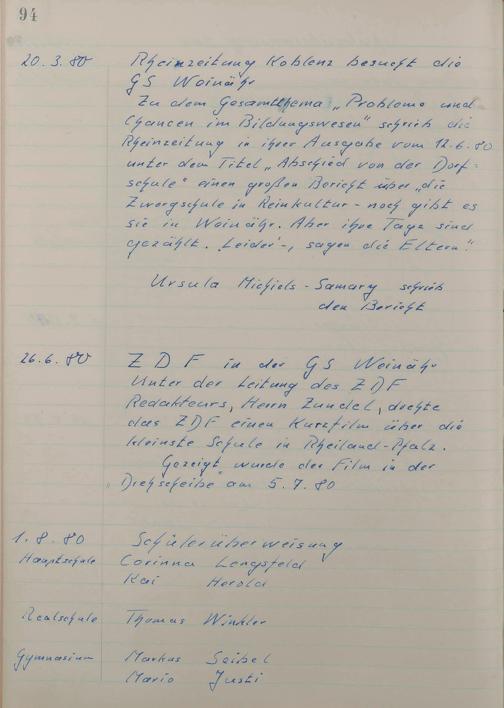 94
20.3.80 Rheinzeitung Koblenz besucht die
GS Weinähr
Zu dem Gesamtthema „Probleme und
Chancen im Bildungswesen" schrieb die
Rheinzeitung in ihrer Ausgabe vom 12.6.80
unter dem Titel „Abschied von der Dorf=
schule" einen großen Bericht über „die
Zwergschule in Reinkultur - noch gibt es
sie in Weinähr. Aber ihre Tage sind
gezählt. ,Leider'-, sagen die Eltern."
Ursula Michels-Samary schrieb
den Bericht
26.6.80 ZDF in der GS Weinähr
Unter der Leitung des ZDF
Redakteurs, Herrn Zundel, drehte
das ZDF einen Kurzfilm über die
kleinste Schule in Rheiland-Pfalz.
Gezeigt wurde der Film in der
„Drehscheibe" am 5.7.80
1.8.80 Schülerüberweisung
Hauptschule Corinna Lengsfeld
Kai Herold
Realschule Thomas Winkler
Gymnasium Markus Seibel
Mario Justi